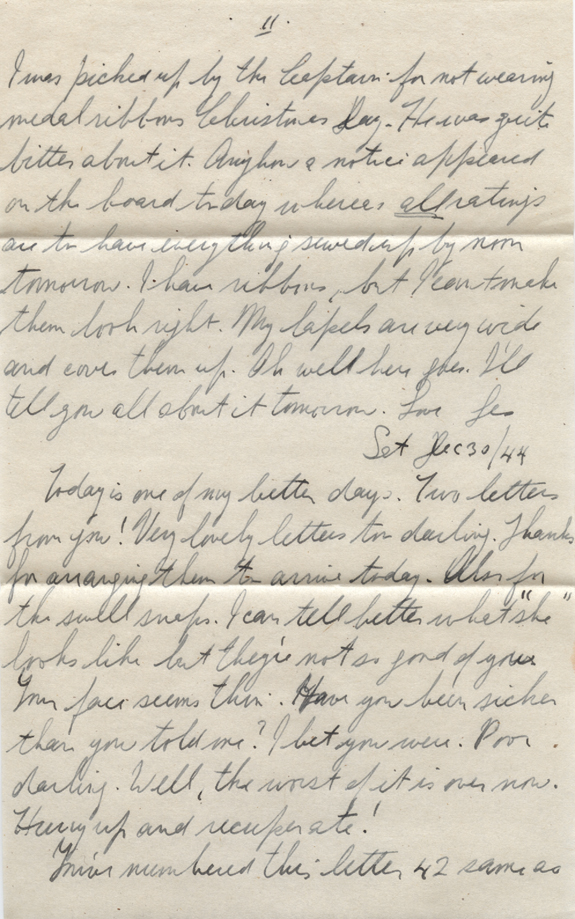 11.
I was picked up by the Captain for not wearing
medal ribbons Christmas Day. He was quite
bitter about it. Anyhow a notice appeared
on the board today whereas all ratings
are to have everything sewed up by noon
tomorrow. I have ribbons, but I can't make
them look right. My lapels are very wide
and cover them up. Oh well here goes. I'll
tell you all about it tomorrow. Love Les
Sat Dec 30/44
Today is one of my better days. Two letters
from you! Very lovely letters too darling. Thanks
for arranging them to arrive today. Also for
the swell snaps. I can tell better what "she"
looks like but they're not so good of you
Your face seems thin. Have you been sicker
than you told me? I bet you were. Poor
darling. Well, the worst of it is over now.
Hurry up and recuperate!
numbered this letter 42 same as